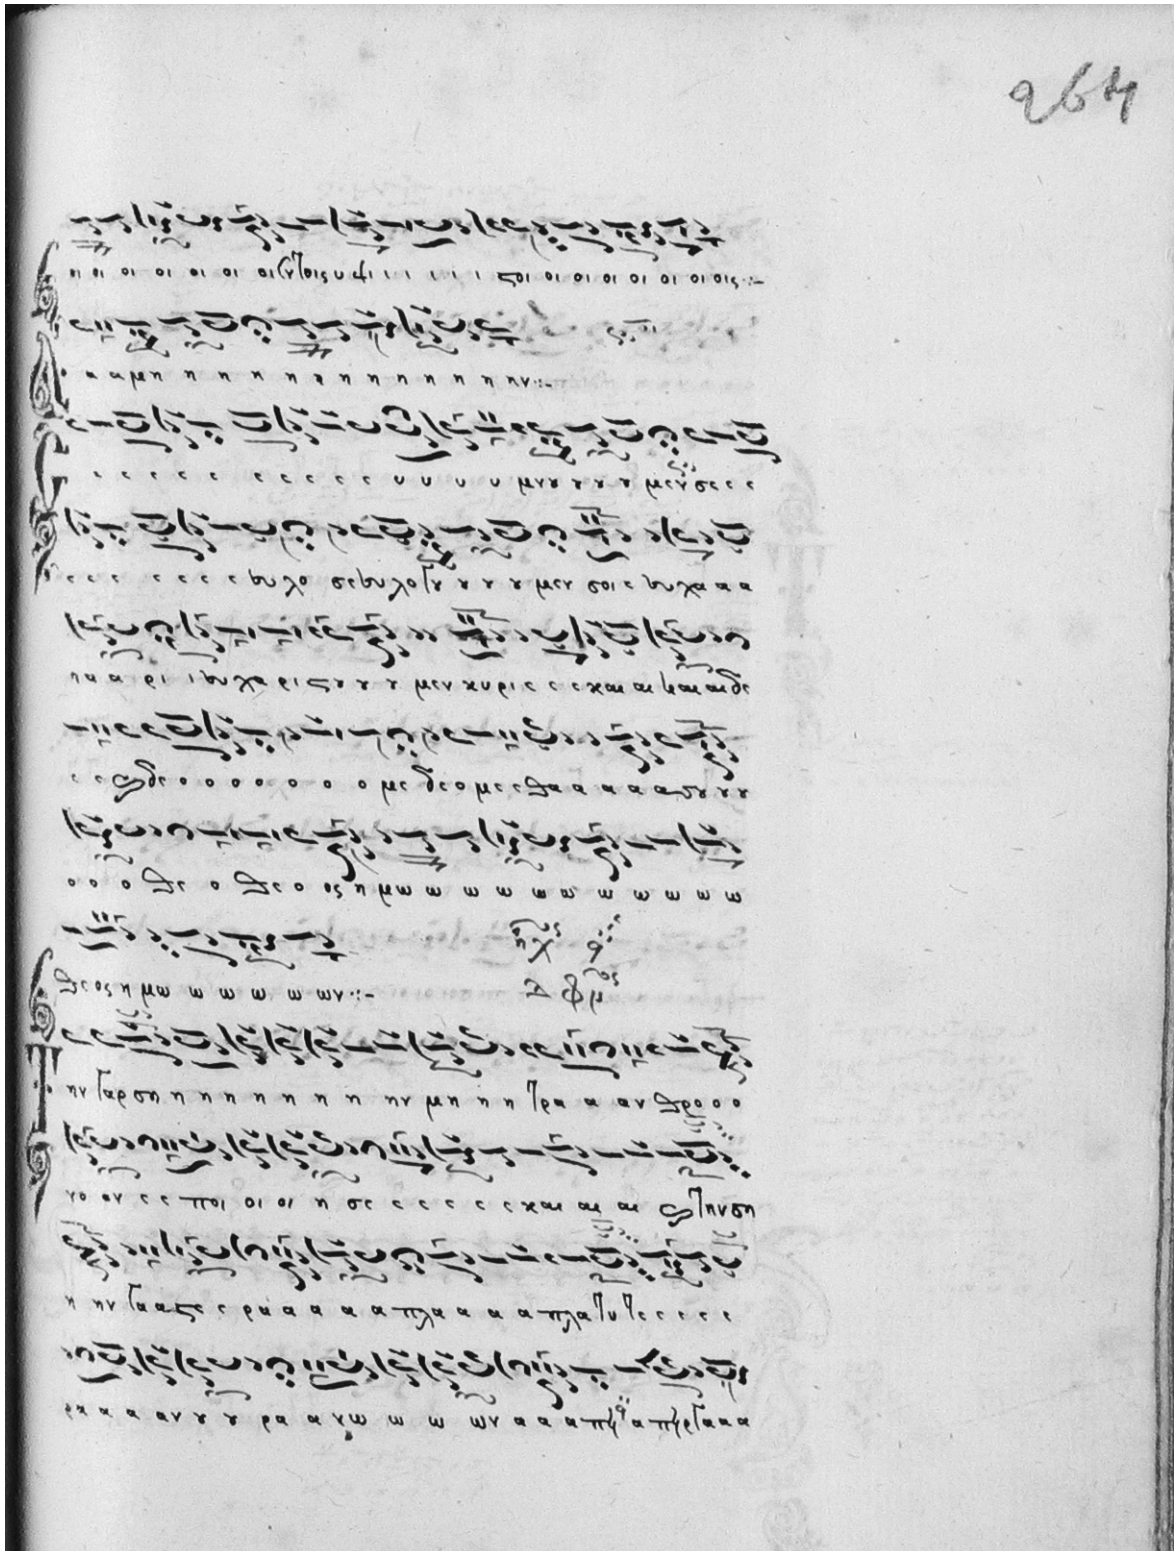 264
οι οι οι οι οι οι οι εν τοις υ ψι ι ι ι ι ι στοι οι οι οι οι οι οι οις :-
α α μη η η η η η η η η η η ην :-
ε ε ε ε ε ε ε ε ε υ υ υ υ μνου ου ου ου μεν σε ε ε
ε ε ε ε ε ε ε ευλο σε ευλογου ου ου ου μεν σοι ευχα α α
α α ρι ι ευχαριστου ου ου μεν κυριε ε ε και αι και αι δε
ε ε δε ο ο ο ο ο ο ο με δεομεεθα α α α α σου ου ου
ο ο ο θε ο θε ο ος η μω ω ω ω ω ω ω ω ω ω
θεος η μω ω ω ω ω ων :-
ηχος
Την γαρ ση η η η η η η η ην μη η η τρα α αν θρο ο ο
νο ον ε ε ποι οι οι η σε ε ε ε ε ε και αι αι την ση
η ην γα α στε ε ρα α α α α πλα α α α πλατυτε ε ε ε ε
ρα α α αν ου ου ρα α νω ω ω ων α α α